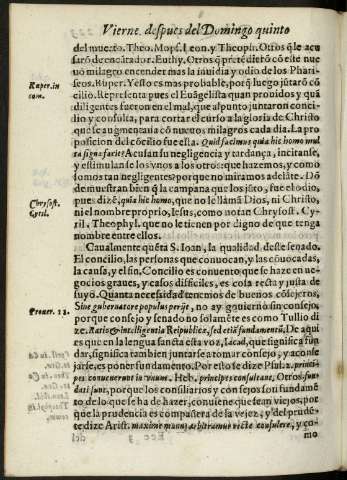 Vierne. despues del Domingo quinto
del muerto. Theo. Mops. Leon. y Theoph. Otros q̃ le acu
sarõ de encãtador. Euthy. Otros q̃ pretẽdierõ cõ este nue
uo milagro encender mas la inuidia y odio de los Phari-
Ruper. in com.
seos. Ruper. Y esto es mas probable, porq̃ luego jutarõ cõ
cilio. Representa pues el Euãgelista quan prouidos y quã
diligentes fueron en el mal, que al punto juntaron conci-
lio y consulta, para cortar el curso a la gloria de Christo
que se augmentaua cõ nueuos milagros cada dia. La pro
posicion del cõcilio fue esta. Quid facimus quia hic homo mul
ta signa facit? Acusan su negligencia y tardança, incitanse,
y estimulanse los vnos a los otros: que hazemos, y como
somos tan negligentes? porque no miramos adelãte. Dõ
de muestran bien q̃ la campana que los jũto, fue el odio,
Chrysost. Cyril.
pues dizẽ, quia hic homo, que no le llamã Dios, ni Christo,
ni el nombre proprio, Iesus, como notan Chrysost. Cy-
ril, Theophyl. que no le tienen por digno de que tenga
nombre entre ellos.
Caualmente quẽta S. Ioan, la qualidad deste senado.
El concilio, las personas que conuocan, y las cõuocadas,
la causa, y el fin. Concilio es conuento que se haze en ne-
gocios graues, y casos difficiles, es cosa recta y justa de
suyo. Quanta necessidad tenemos de buenos cõsejeros,
Prouer. 12.
Sine gubernatore populus perijt, no ay gouierno sin consejo,
porque consejo y senado no solamẽte es como Tullio di
ze. Ratio & intelligentia Reipublicæ, sed etiã fundamentũ, De aqui
es que en la lengua sancta esta voz, Iacad, que significa fun
dar, significa tambien juntarse a tomar consejo, y aconse
jarse, es poner fundamento. Por esto se dize Psal. 2. princi-
pes conuenerunt in vnum. Heb. principes consultant, Otros. fun-
dati sunt, porque los consiliarios y consejos son fundamẽ
to de lo que se ha de hazer, conuiene que sean viejos, por
que la prudencia es compañera de la vejez, y del prudẽ-
te dize Arist. maxime munus arbitramur recte consulere, y co-
mo